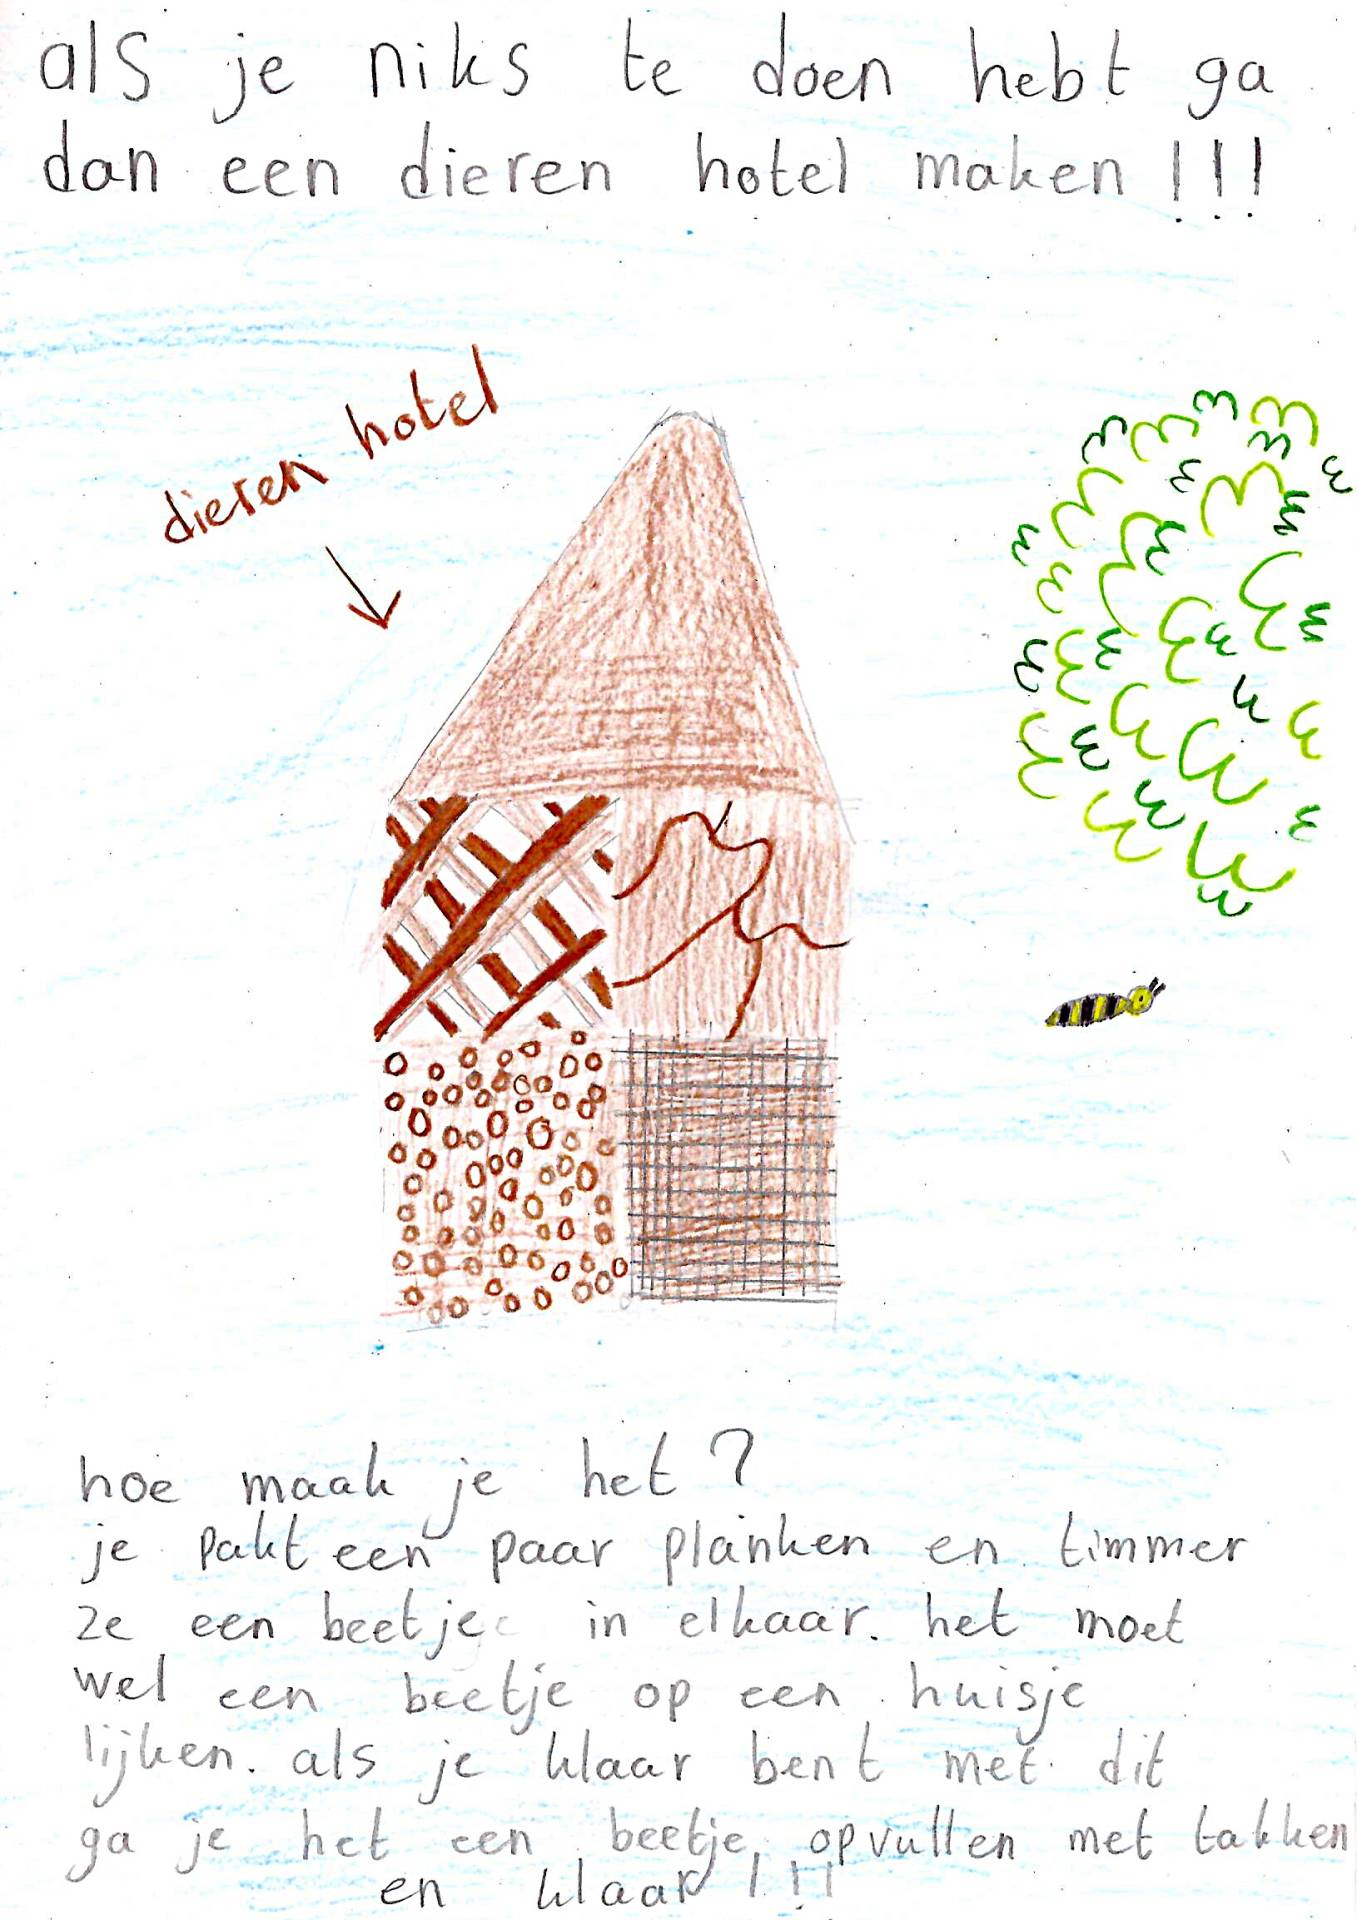 als je niks te doen hebt ga
dan een dieren hotel maken !!!
dieren hotel
hoe maak je het ?
je pakt een paar planken en timmer
ze een beetje in elkaar. het moet
wel een beetje op een huisje
lijken. als je klaar bent met dit
ga je het een beetje opvullen met takken
en klaar !!!